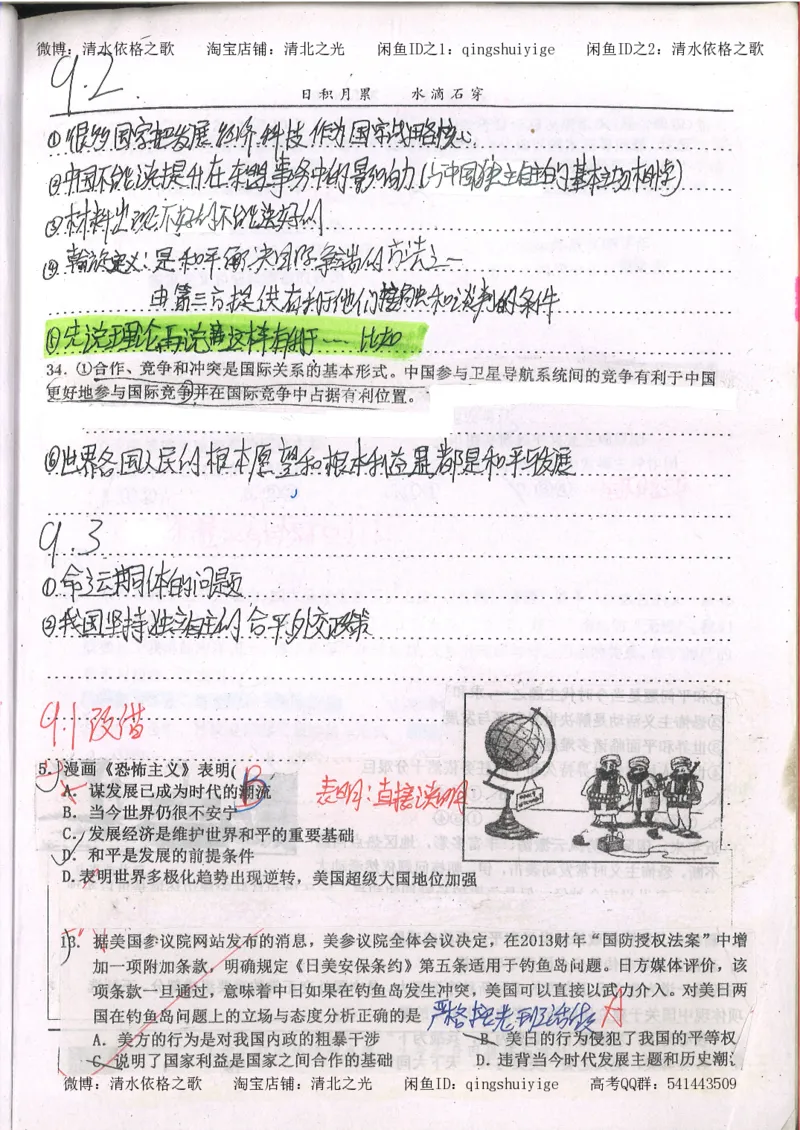 微博：清水依格之歌 淘宝店铺：清北之光 闲鱼ID之1：qingshuiyige 闲鱼ID之2：清水依格之歌
9.2
日积月累 水滴石穿
①很多国家把发展经济科技作为国家战略核心
②中国不能说提升在东盟事务中的影响力(与中国独立自主的基本立场相悖)
③材料出现不好的不能选好的
④斡旋定义：是和平解决国际争端的方法之一
由第三方提供有利于他们接触和谈判的条件
⑤先说理论再说 这样有利于…… 比如
34. ①合作、竞争和冲突是国际关系的基本形式。中国参与卫星导航系统间的竞争有利于中国
更好地参与国际竞争②并在国际竞争中占据有利位置。
⑥世界各国人民的根本愿望和根本利益 都是和平与发展
9.3
①命运共同体的问题
②我国坚持独立自主的和平外交政策
9.1改错
5. 漫画《恐怖主义》表明( B
A. 谋发展已成为时代的潮流
表明：直接说明
B. 当今世界仍很不安宁
C. 发展经济是维护世界和平的重要基础
D. 和平是发展的前提条件
D. 表明世界多极化趋势出现逆转，美国超级大国地位加强
13. 据美国参议院网站发布的消息，美参议院全体会议决定，在2013财年“国防授权法案”中增
加一项附加条款，明确规定《日美安保条约》第五条适用于钓鱼岛问题。日方媒体评价，该
项条款一旦通过，意味着中日如果在钓鱼岛发生冲突，美国可以直接以武力介入。对美日两
国在钓鱼岛问题上的立场与态度分析正确的是 A
A. 美方的行为是对我国内政的粗暴干涉 B. 美日的行为侵犯了我国的平等权
C. 说明了国家利益是国家之间合作的基础 D. 违背当今时代发展主题和历史潮
微博：清水依格之歌 淘宝店铺：清北之光 闲鱼ID：qingshuiyige 高考QQ群：541443509